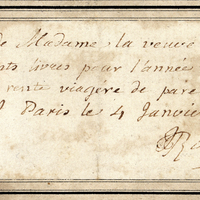 de Madame la veuve
nts livres pour l'année
rente viagère de pare
à Paris le 4 Janvie